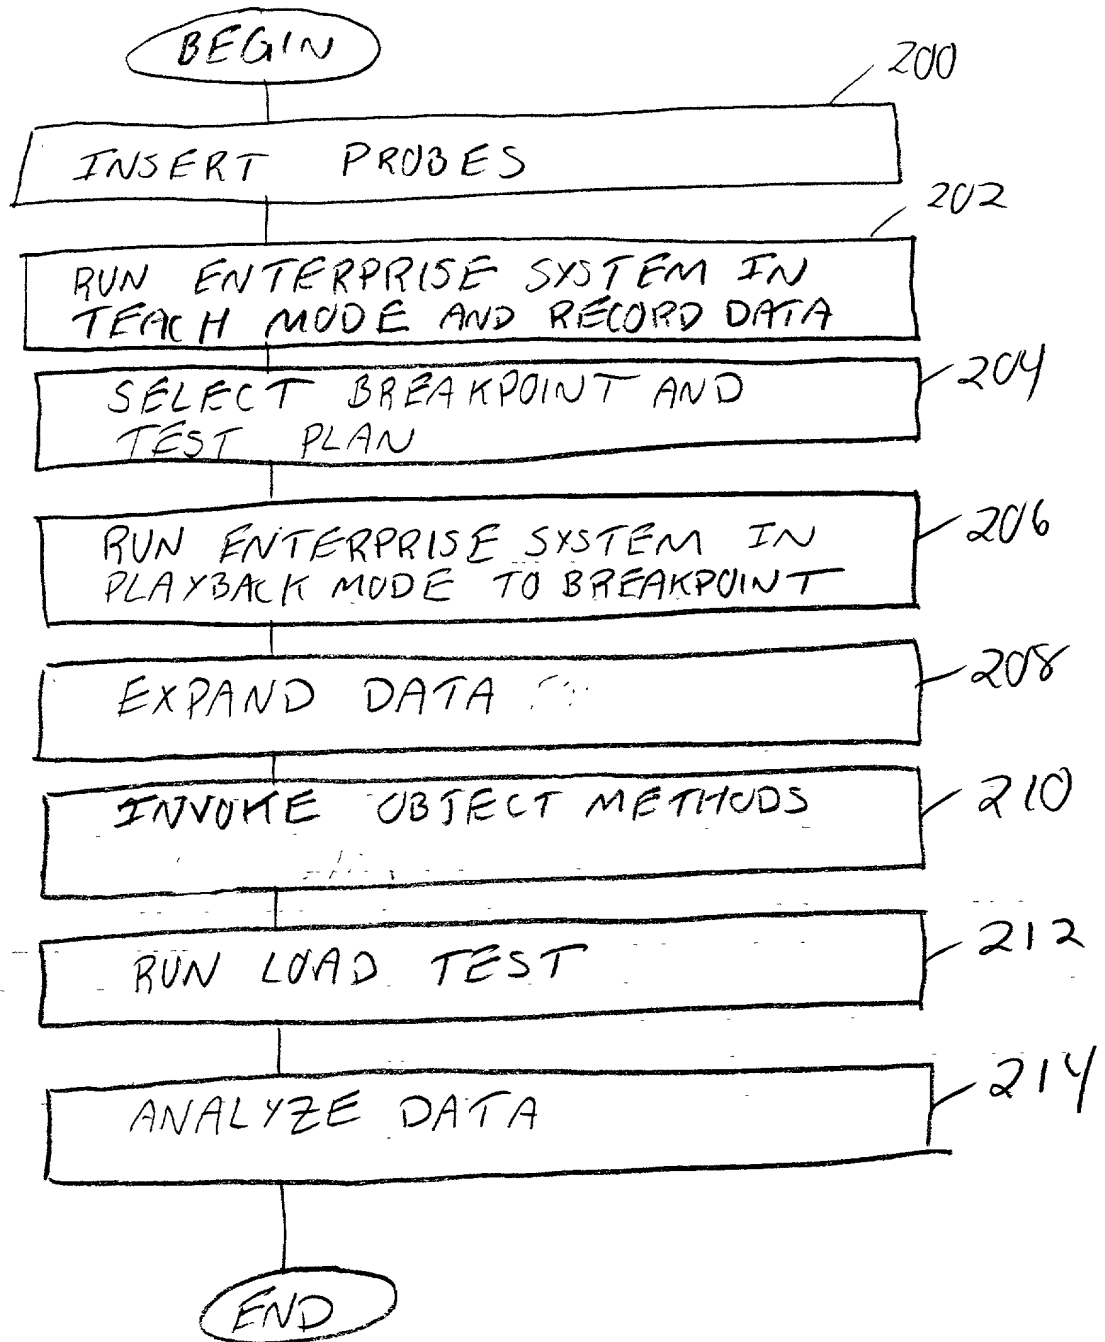 BEGIN
200
INSERT PROBES
202
RUN ENTERPRISE SYSTEM IN
TEACH MODE AND RECORD DATA
204
SELECT BREAKPOINT AND
TEST PLAN
206
RUN ENTERPRISE SYSTEM IN
PLAYBACK MODE TO BREAKPOINT
208
EXPAND DATA
210
INVOKE OBJECT METHODS
212
RUN LOAD TEST
214
ANALYZE DATA
END